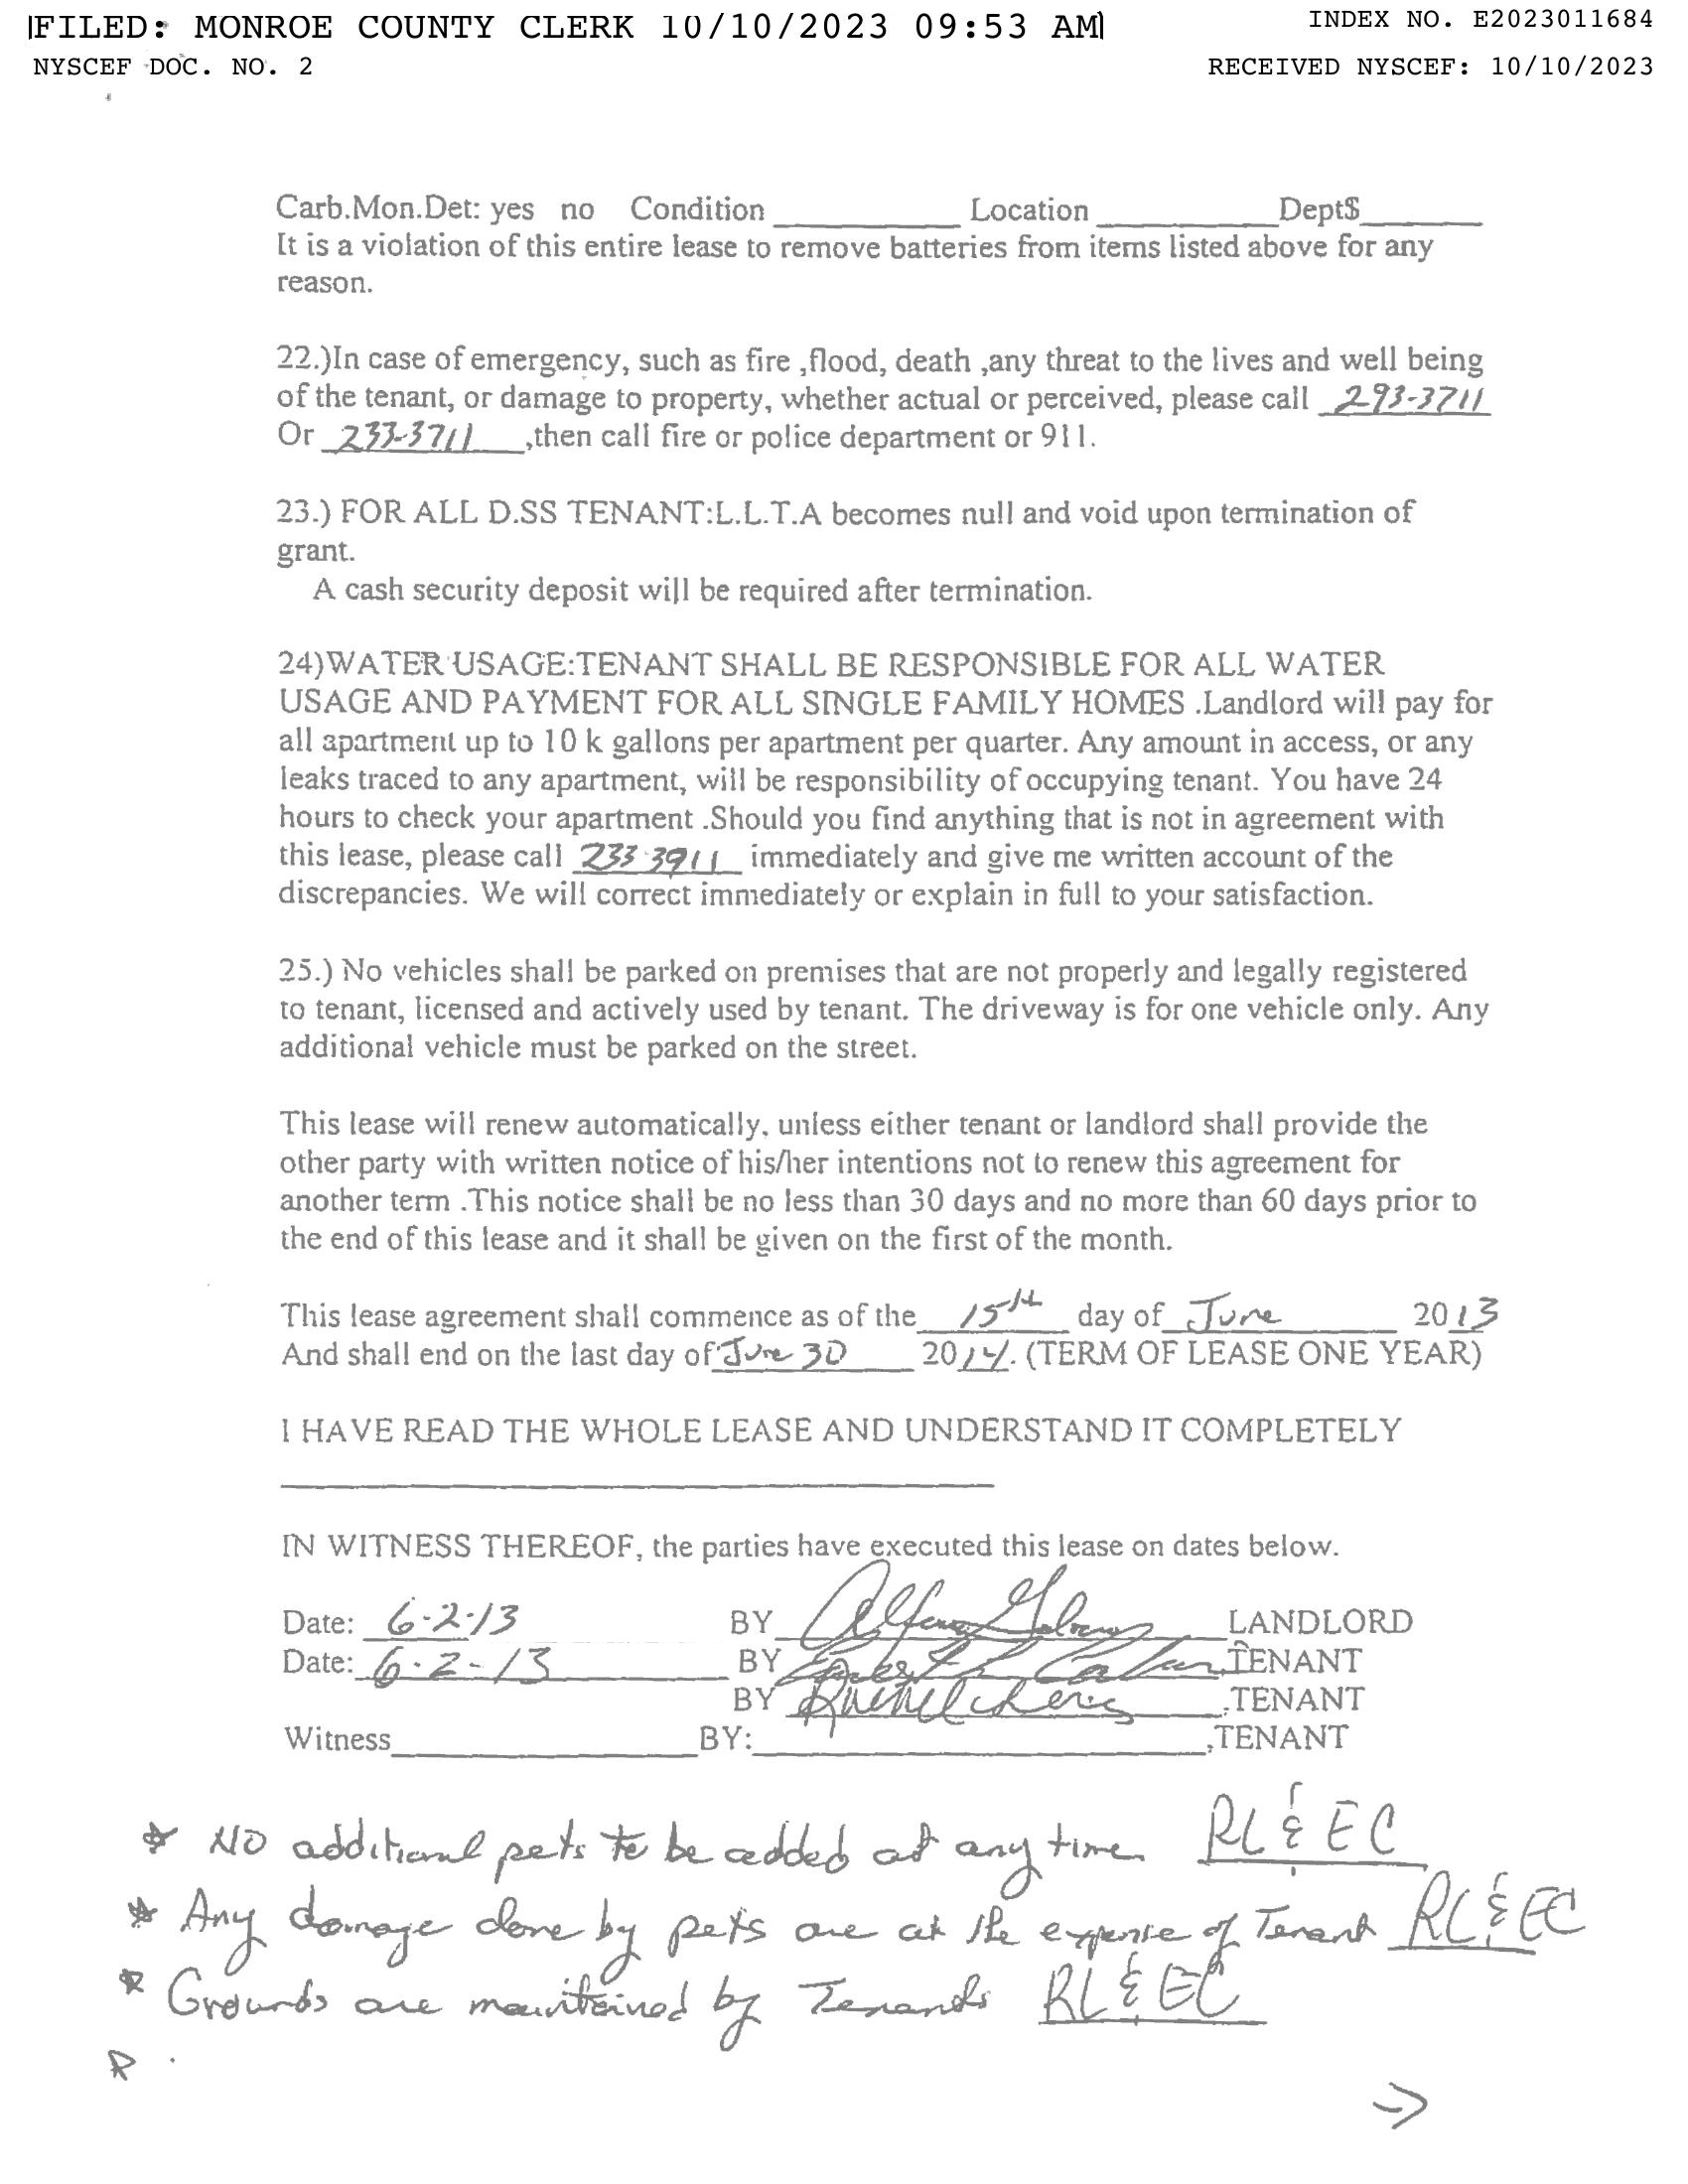 FILED: MONROE COUNTY CLERK 10/10/2023 09:53 AM
INDEX NO. E2023011684
NYSCEF DOC. NO. 2
RECEIVED NYSCEF: 10/10/2023
Carb.Mon.Det: yes no Condition __________ Location __________ Dept$_______
It is a violation of this entire lease to remove batteries from items listed above for any
reason.
22.)In case of emergency, such as fire ,flood, death ,any threat to the lives and well being
of the tenant, or damage to property, whether actual or perceived, please call 293-3711
Or 233-3711 ,then call fire or police department or 911.
23.) FOR ALL D.SS TENANT:L.L.T.A becomes null and void upon termination of
grant.
A cash security deposit will be required after termination.
24)WATER USAGE:TENANT SHALL BE RESPONSIBLE FOR ALL WATER
USAGE AND PAYMENT FOR ALL SINGLE FAMILY HOMES .Landlord will pay for
all apartment up to 10 k gallons per apartment per quarter. Any amount in access, or any
leaks traced to any apartment, will be responsibility of occupying tenant. You have 24
hours to check your apartment .Should you find anything that is not in agreement with
this lease, please call 233-3911 immediately and give me written account of the
discrepancies. We will correct immediately or explain in full to your satisfaction.
25.) No vehicles shall be parked on premises that are not properly and legally registered
to tenant, licensed and actively used by tenant. The driveway is for one vehicle only. Any
additional vehicle must be parked on the street.
This lease will renew automatically, unless either tenant or landlord shall provide the
other party with written notice of his/her intentions not to renew this agreement for
another term .This notice shall be no less than 30 days and no more than 60 days prior to
the end of this lease and it shall be given on the first of the month.
This lease agreement shall commence as of the 15th day of June 2013
And shall end on the last day of June 30 2014. (TERM OF LEASE ONE YEAR)
I HAVE READ THE WHOLE LEASE AND UNDERSTAND IT COMPLETELY
IN WITNESS THEREOF, the parties have executed this lease on dates below.
Date: 6-2-13 BY LANDLORD
Date: 6-2-13 BY TENANT
BY ,TENANT
Witness__________ BY:__________,TENANT
* NO additional pets to be added at any time RL & EC
* Any damage done by pets are at the expense of Tenant RL & EC
* Grounds are maintained by Tenants RL & EC
*
→